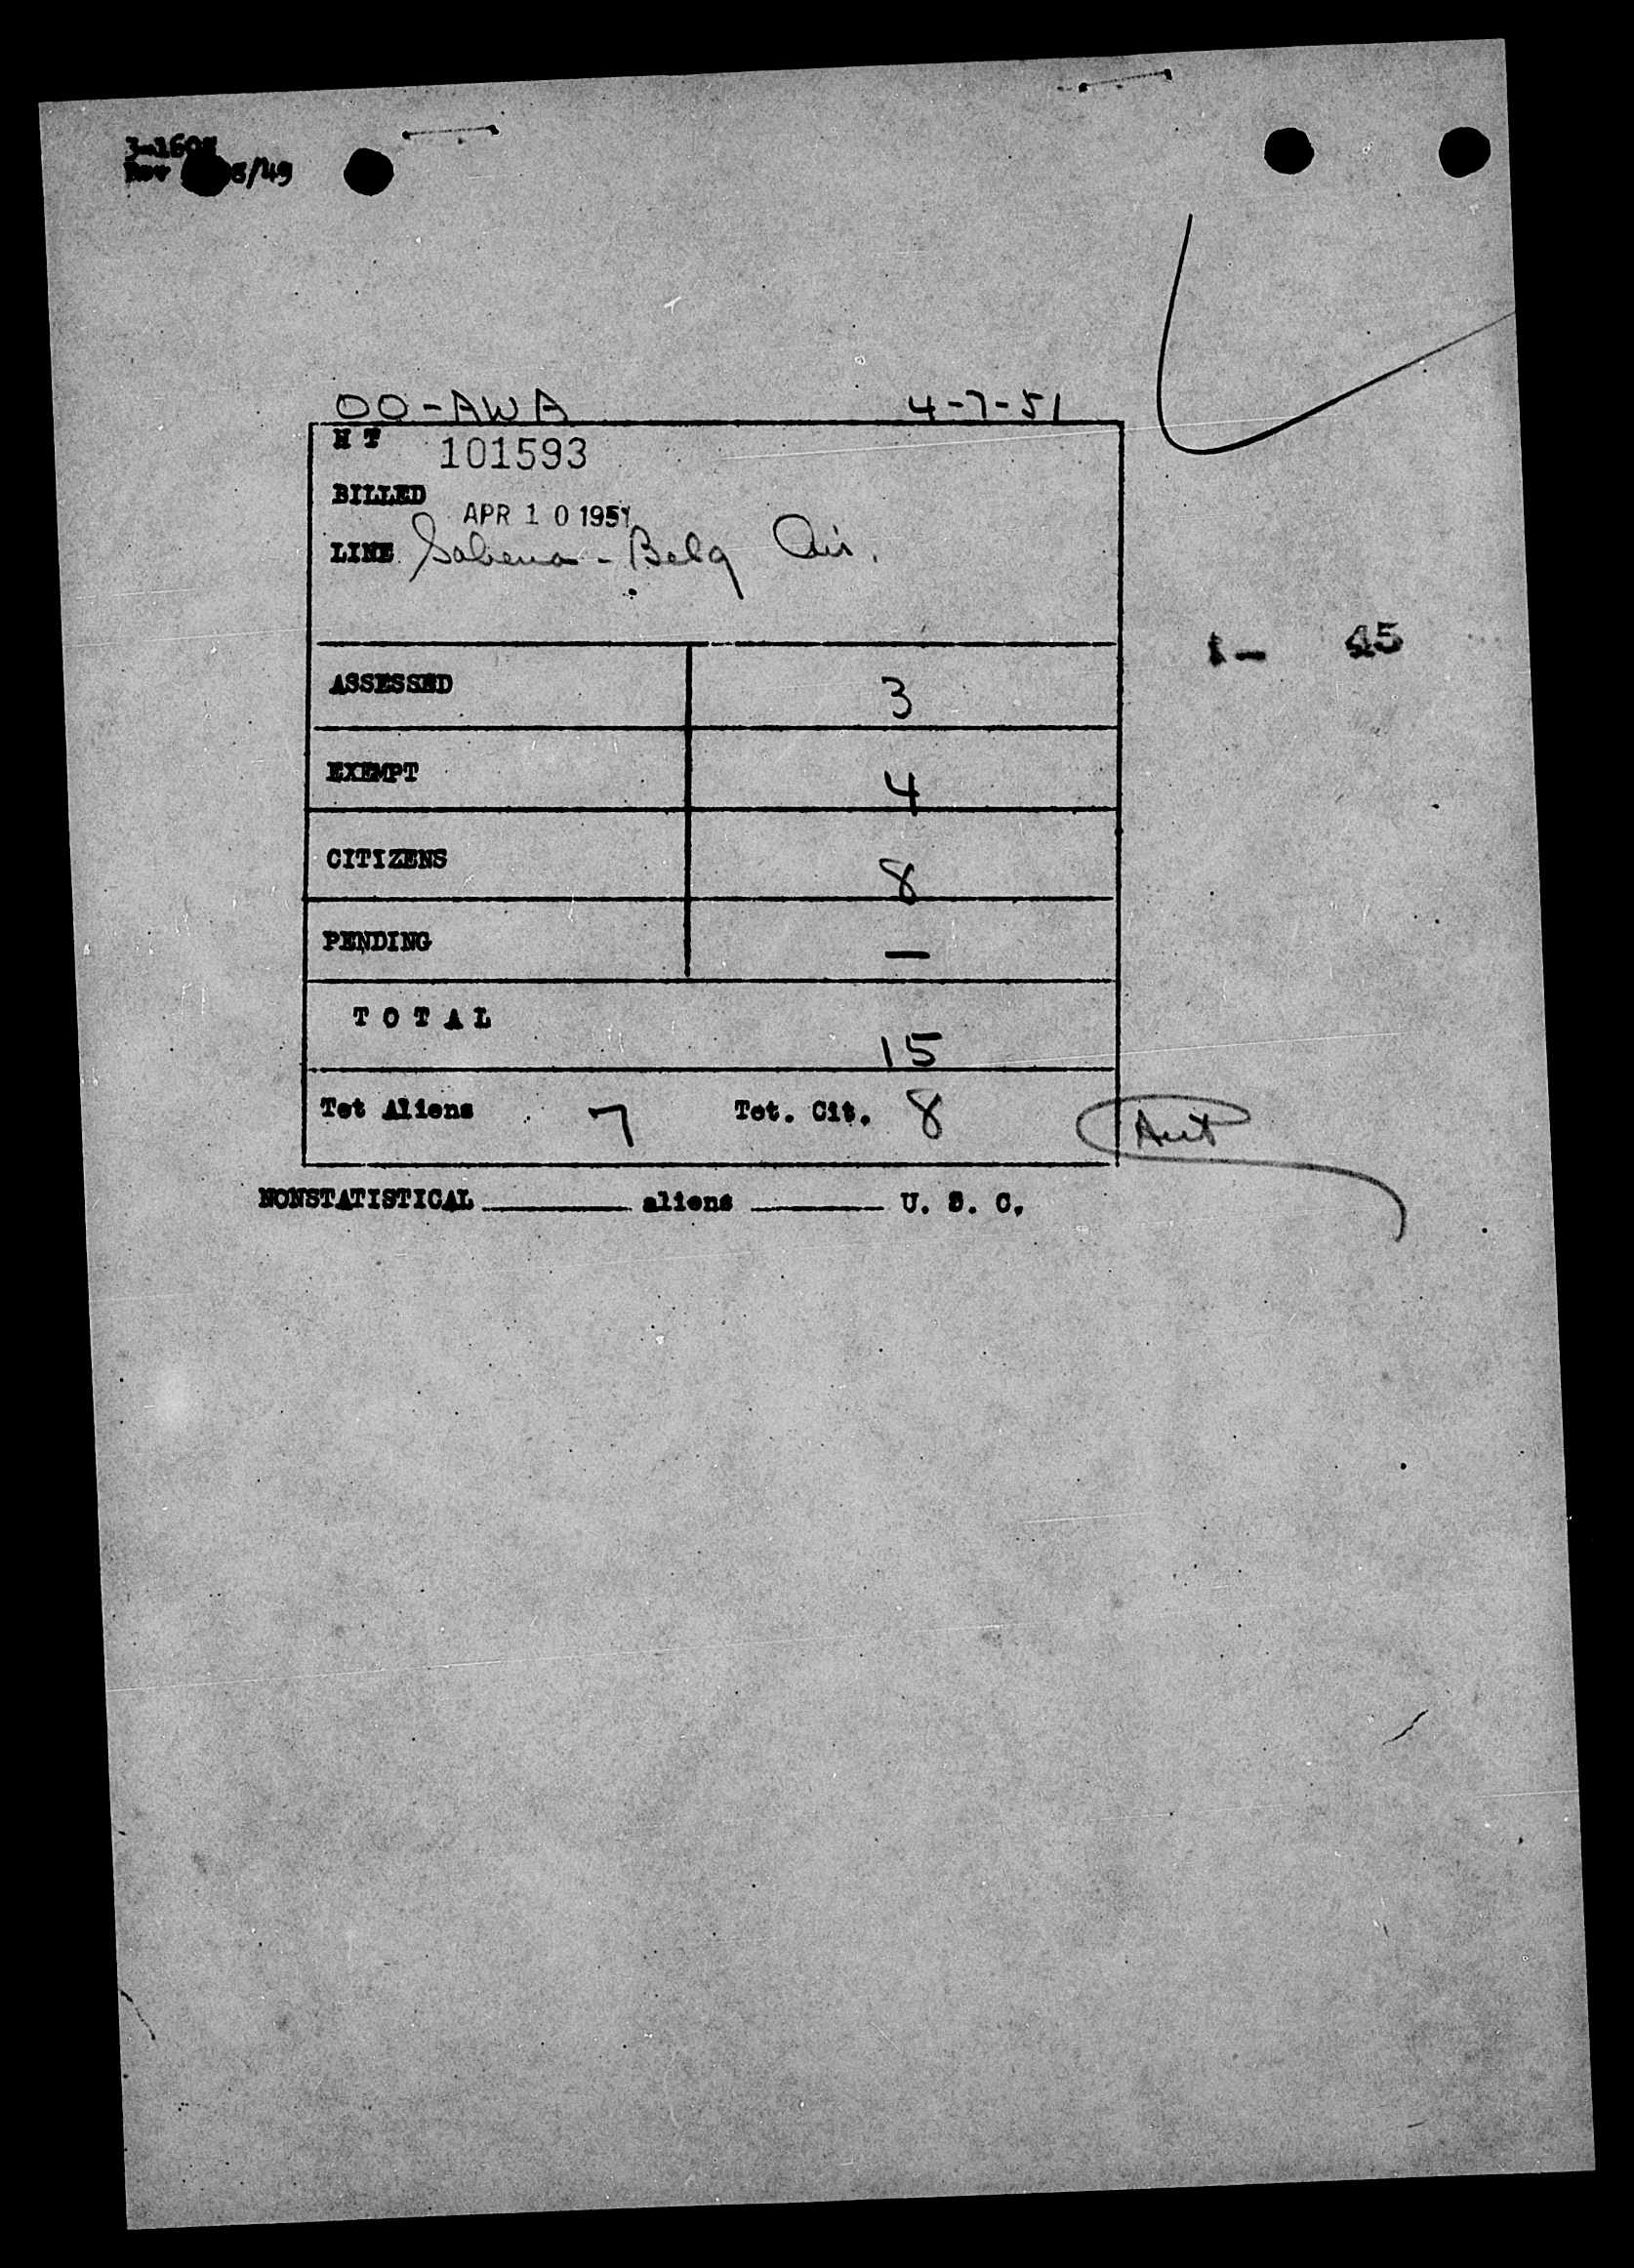 3-160
Rev /49
OO-AWA 4-7-51
H T 101593
BILLED
APR 10 1951
LINE Sabena - Belg Air.
1- 45
ASSESSED 3
EXEMPT 4
CITIZENS 8
PENDING —
TOTAL
15
Tot Aliens 7 Tot. Cit. 8
NONSTATISTICAL ______ aliens ______ U. S. C.